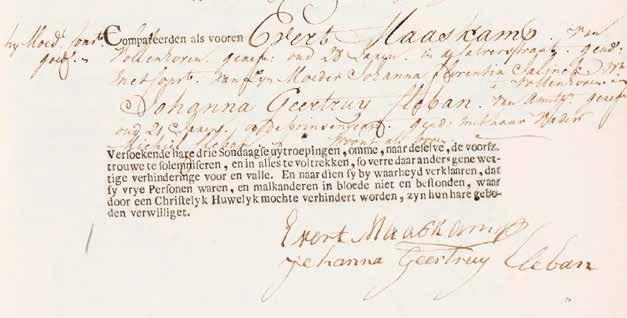 Compareerden als vooren Evert Maaskamp. van
Vollenhoven. geref: oud 28 Jaaren. in de halverstraat. gead:
met sch: van syn Moeder Johanna Florentia
Vollenhoven. en
Johanna Geertruy Cleban. van Amst: geref
oud 21 Jaaren. op de prinsengragt. gead: met haar Vader
Michiel Cleban. woont als
Versoekende hare drie Sondaagse uytroepingen, omme, naar deselve, de voorsz.
trouwe te solemniseren, en in alles te voltrekken, so verre daar anders gene wet-
tige verhinderinge voor en valle. En naar dien sy by waarheyd verklaaren, dat
sy vrye Personen waren, en malkanderen in bloede niet en bestonden, waar
door een Christelyk Huwelyk mochte verhindert worden, zyn hun hare gebo-
den verwilliget.
Evert Maaskamp
Johanna Geertruy Cleban